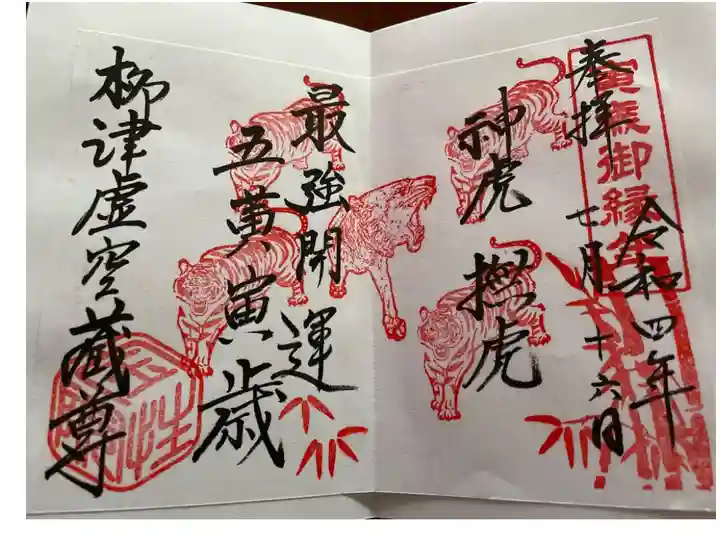 奉拝
令和四年
七月十六日
神虎 撫虎
最強開運
五黄寅歳
柳津虚空蔵尊